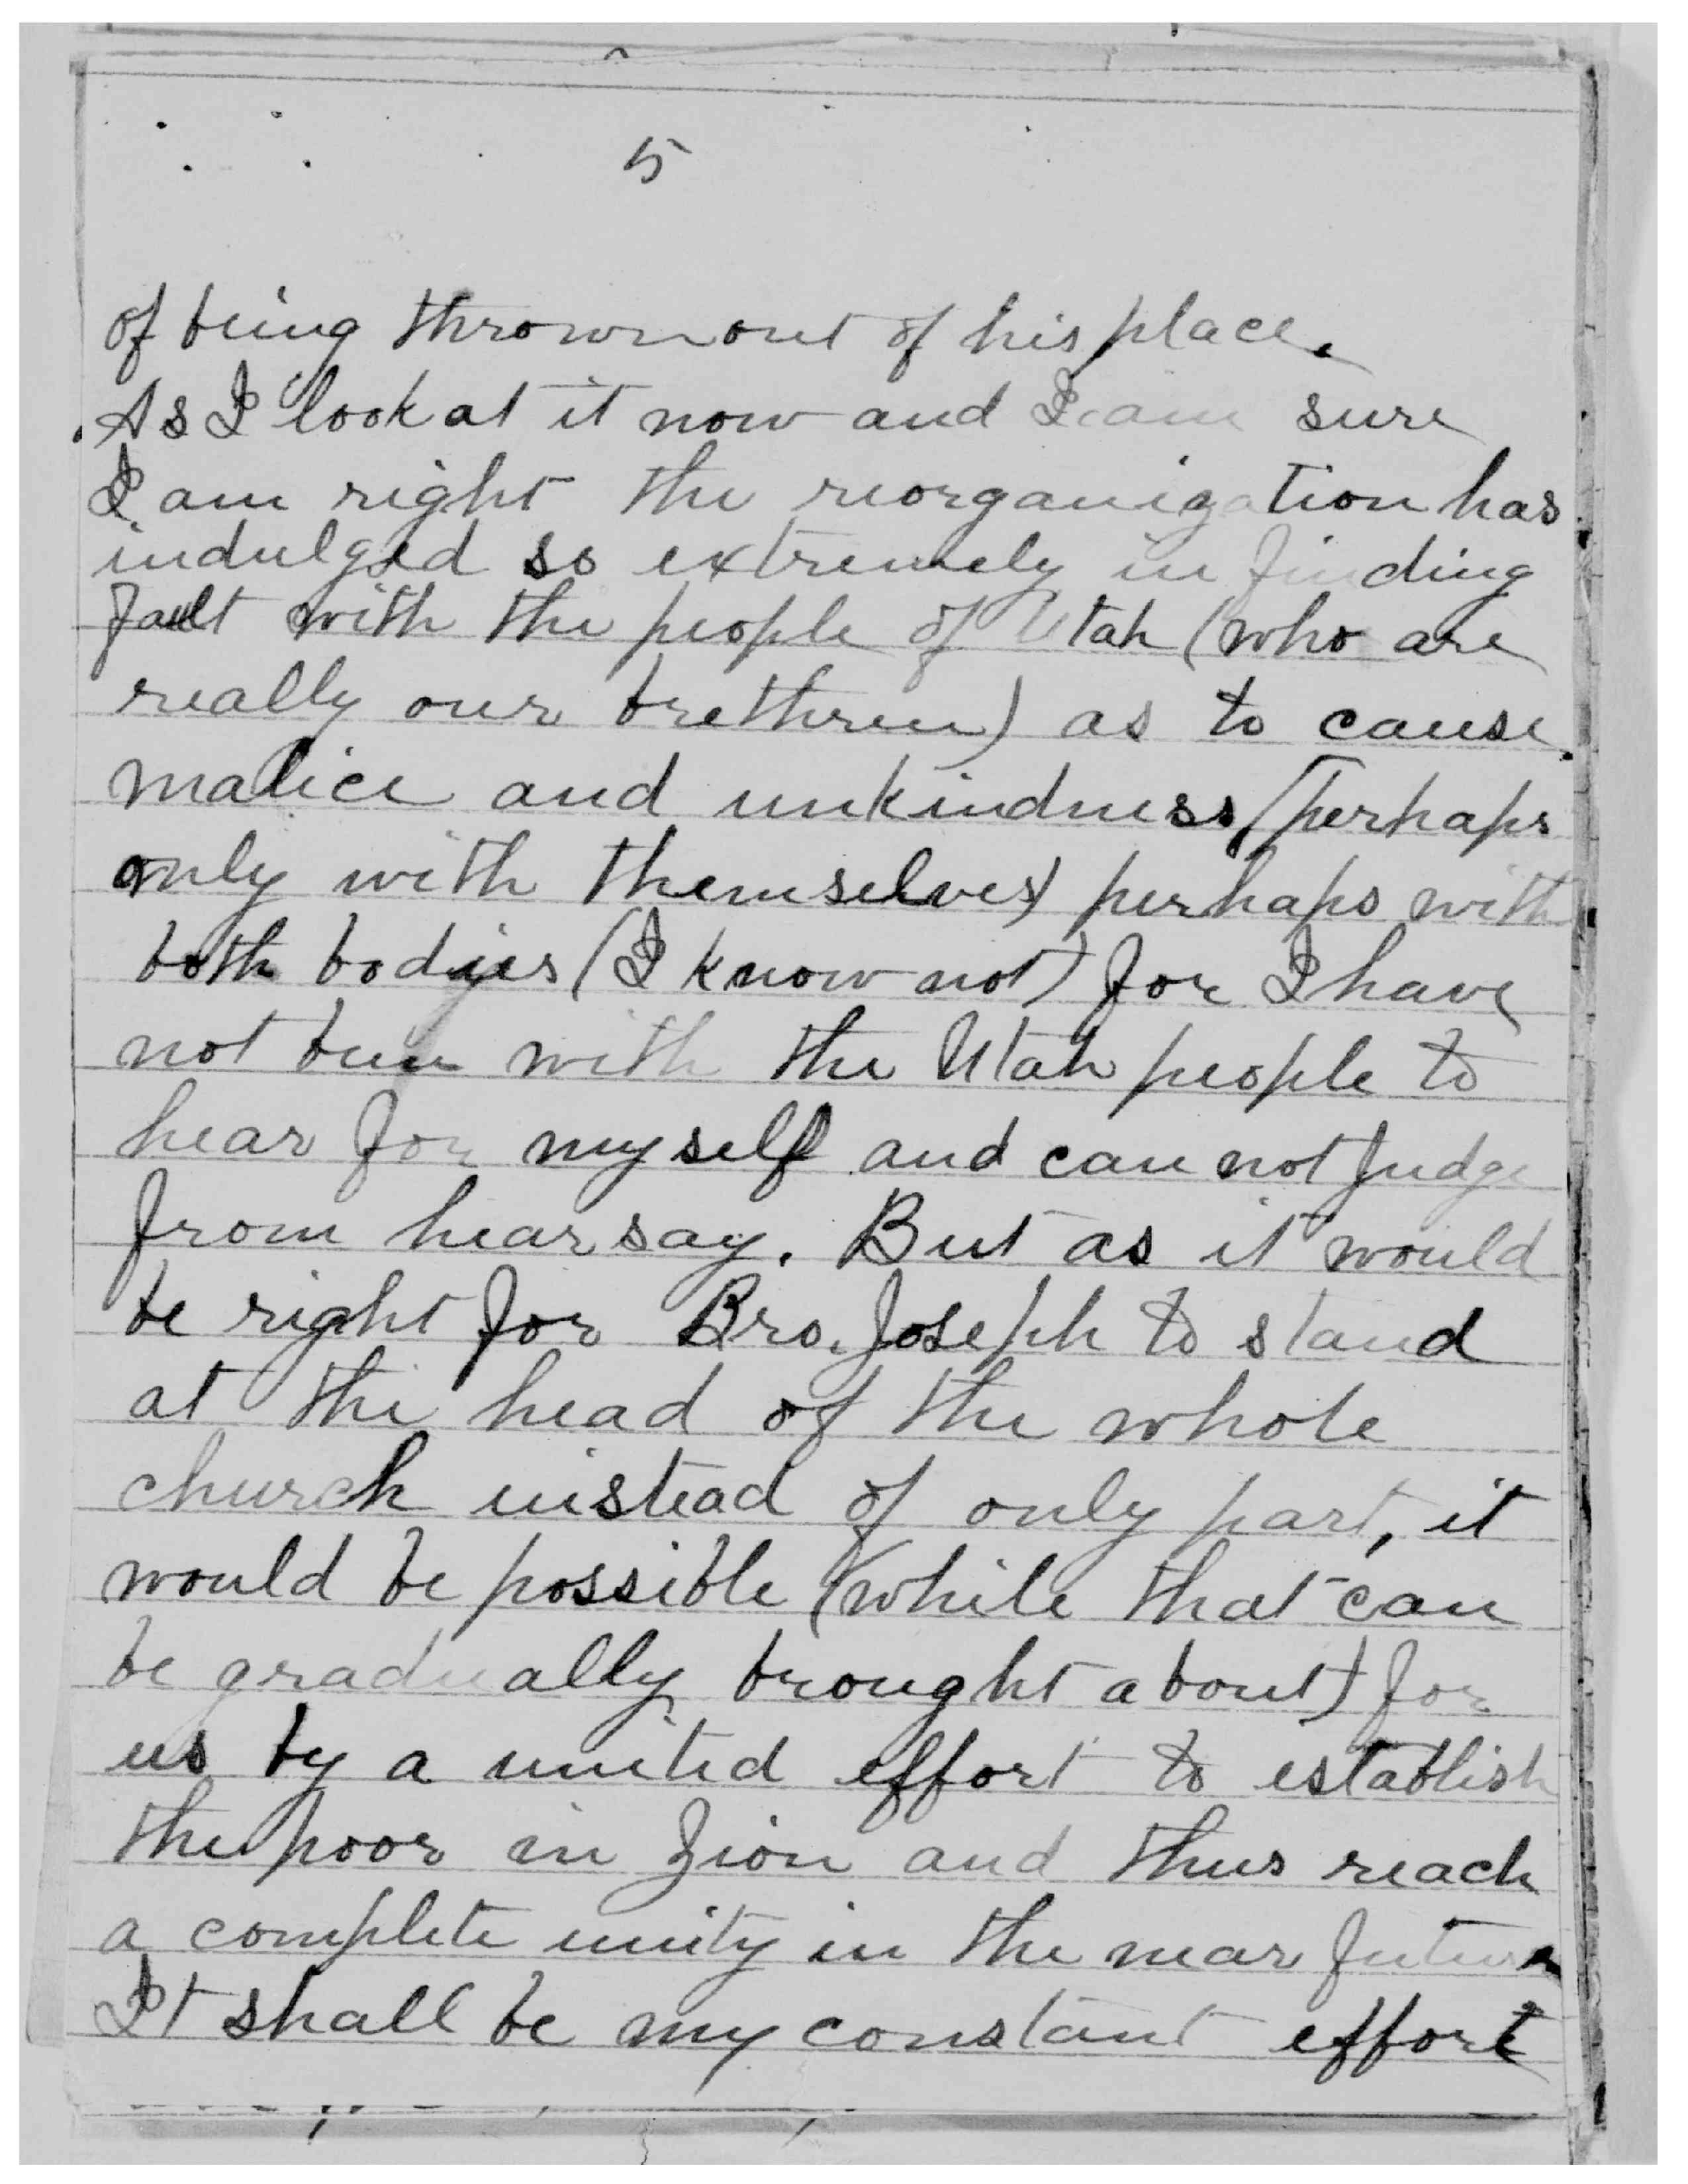 5
of being thrown out of his place.
As I look at it now and I am sure
I am right the reorganization has
indulged so extremely in finding
fault with the people of Utah (who are
really our brethren) as to cause
malice and unkindness (perhaps
only with themselves) perhaps with
both bodies (I know not) for I have
not been with the Utah people to
hear for myself and can not judge
from hearsay. But as it would
be right for Bro. Joseph to stand
at the head of the whole
church instead of only part, it
would be possible (while that can
be gradually brought about) for
us by a united effort to establish
the poor in Zion and thus reach
a complete unity in the near future
It shall be my constant effort